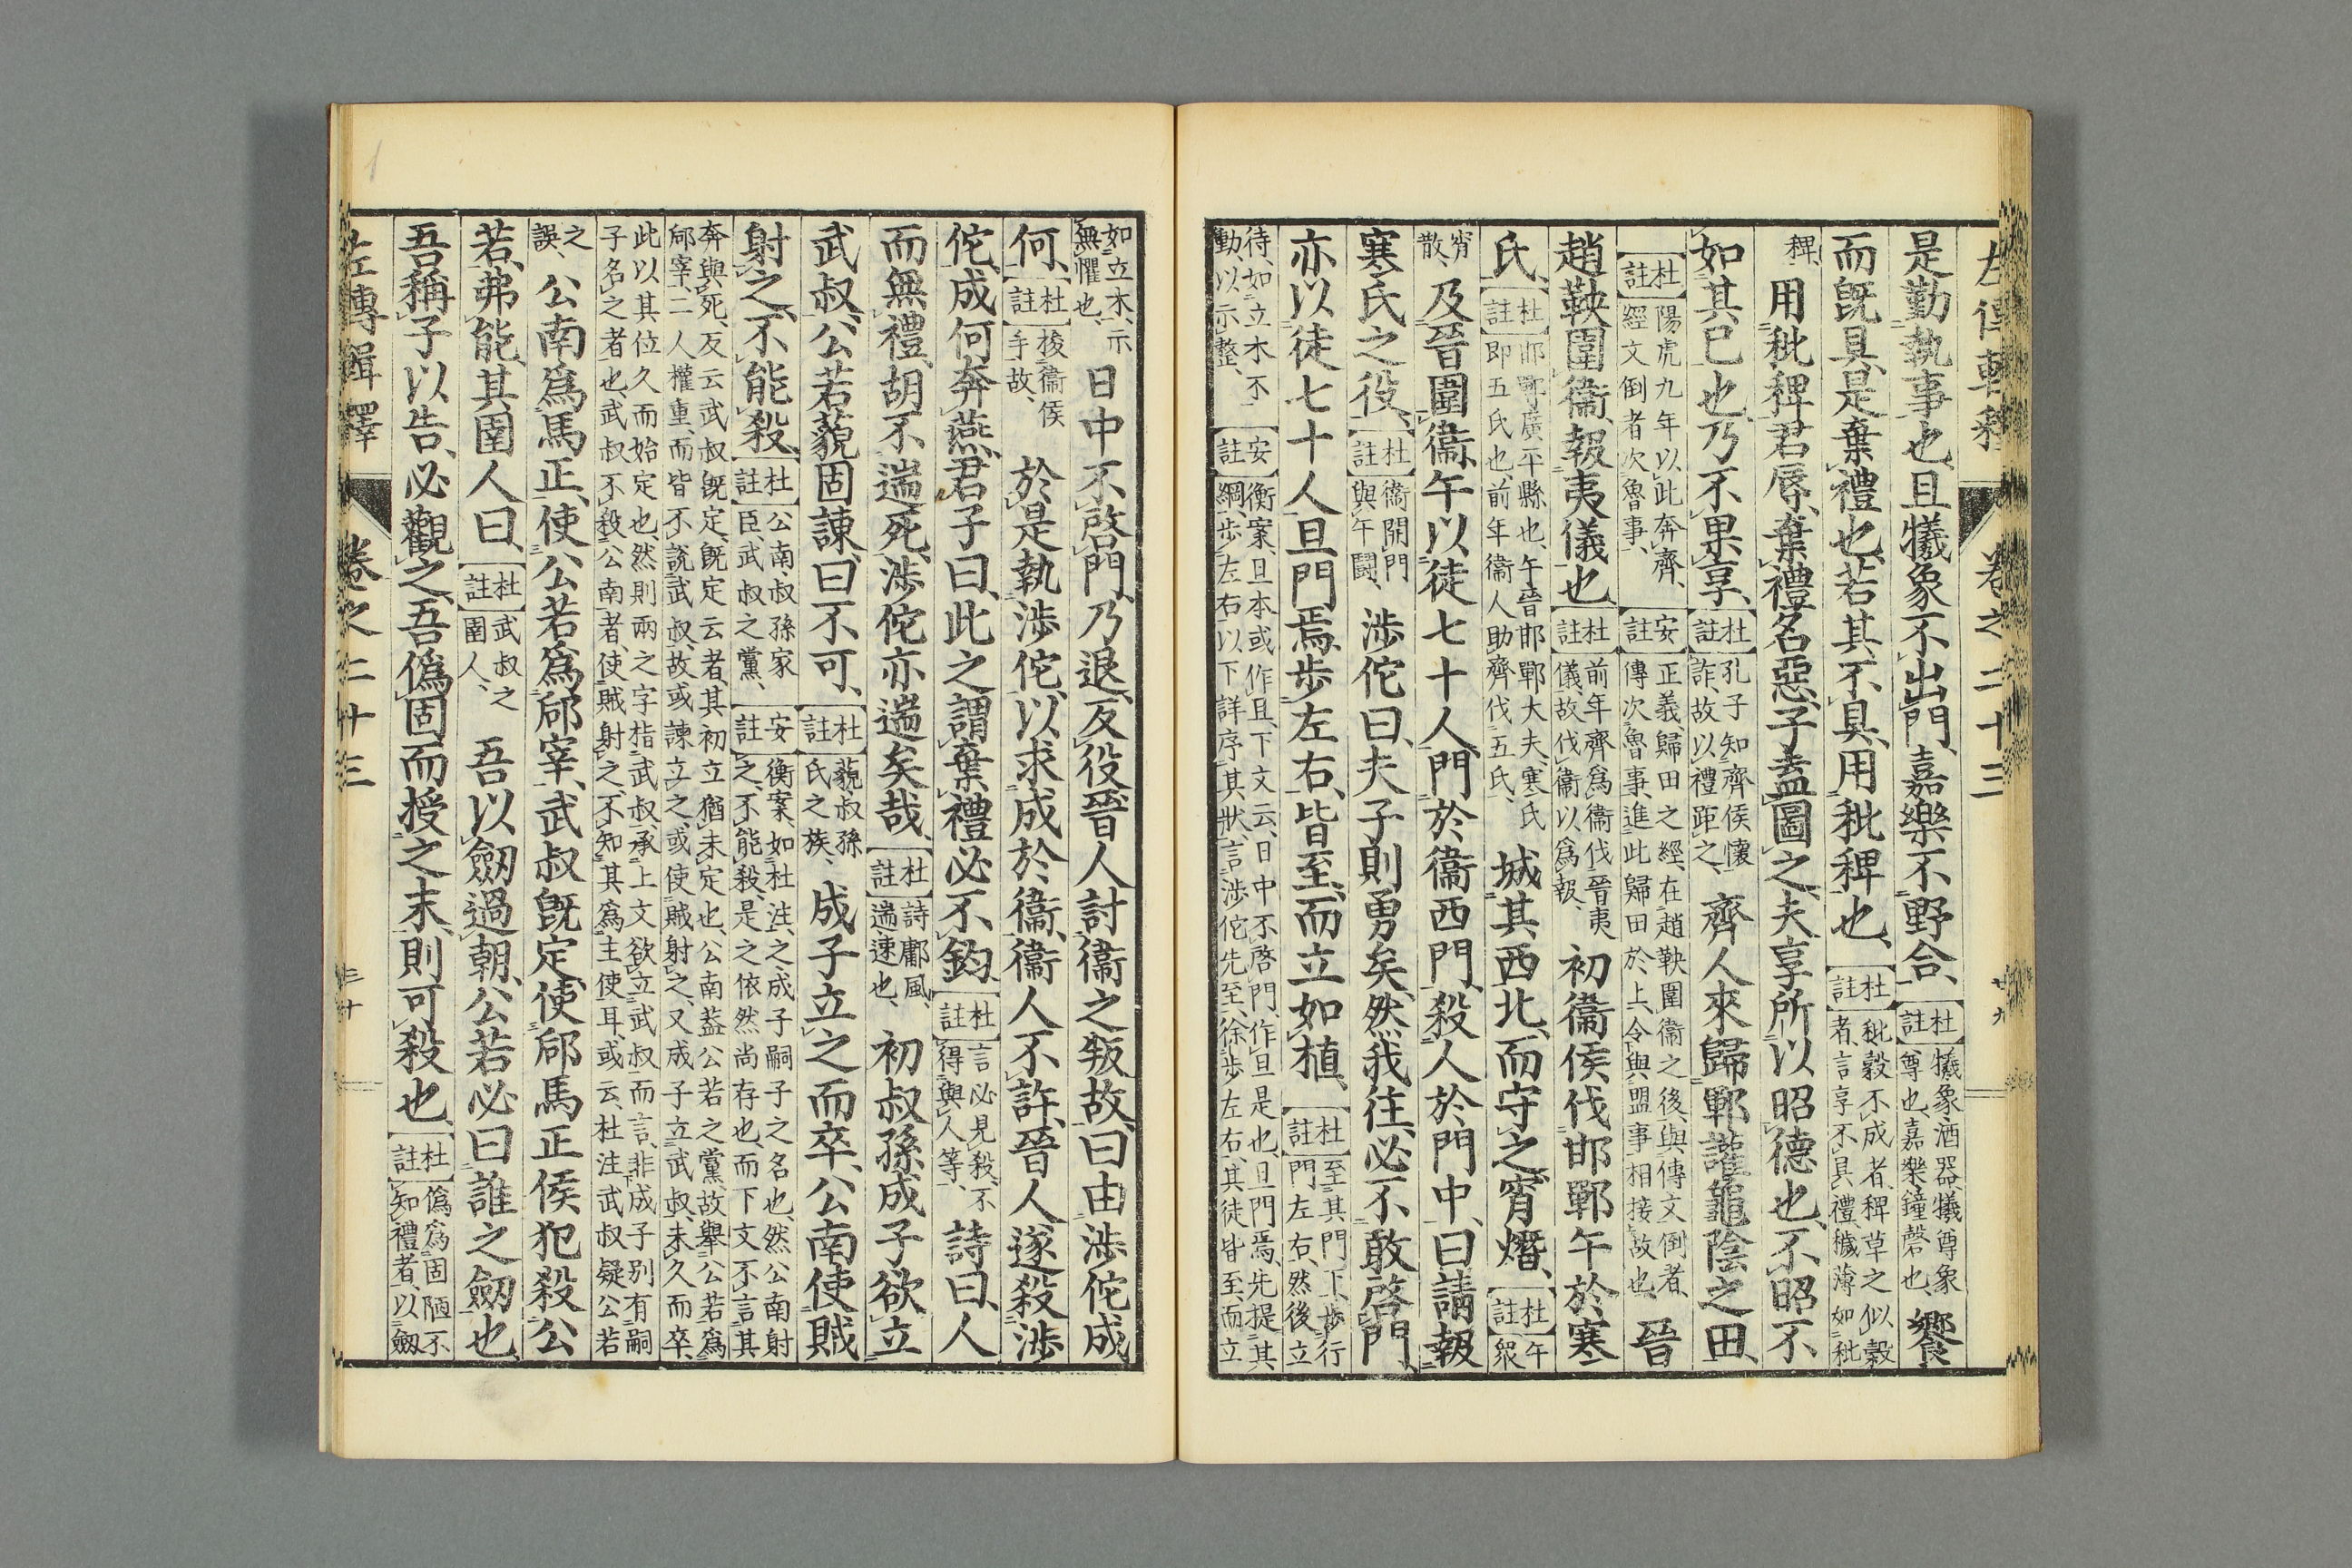 左傳輯釋 卷之二十三 廿九
是勤執事也、且犧象不出門、嘉樂不野合、杜註犧象、酒器、犧尊象尊也、嘉樂、鐘磬也、饗
而既具、是棄禮也、若其不具、用秕稗也、杜註秕、穀不成者、稗、草之似穀者、言享不具禮、穢薄如秕
稗、用秕稗、君辱、棄禮、名惡、子盍圖之、夫享所以昭德也、不昭不
如其已也、乃不果享、杜註孔子知齊侯懷詐、故以禮距之、齊人來歸鄆讙龜陰之田、
杜註陽虎九年以此奔齊、經文倒者、次魯事、安註正義、歸田之經、在趙鞅圍衞之後、與傳文倒者、傳次魯事、進此歸田於上、令與盟事相接故也、晉
趙鞅圍衞、報夷儀也、杜註前年齊爲衞伐晉夷儀、故伐衞以爲報、初衞侯伐邯鄲午於寒
氏、杜註邯鄲、廣平縣也、午、晉邯鄲大夫、寒氏即五氏也、前年衞人助齊伐五氏、城其西北、而守之、宵熸、杜註午衆
宵散、及晉圍衞、午以徒七十人、門於衞西門、殺人於門中、曰、請報
寒氏之役、杜註衞開門與午鬪、涉佗曰、夫子則勇矣、然我往、必不敢啓門、
亦以徒七十人、旦門焉、步左右、皆至、而立如植、杜註至其門下、步行門左右、然後立
待、如立木不動、以示整、安註衡案、旦本或作且、下文云、日中不啓門、作旦是也、旦門焉、先提其綱、步左右以下、詳序其狀、言涉佗先至、徐步左右、其徒皆至、而立
如立木、示無懼也、日中不啓門、乃退、反役、晉人討衞之叛故、曰由涉佗成
何、杜註捘衞侯手故、於是執涉佗、以求成於衞、衞人不許、晉人遂殺涉
佗、成何奔燕、君子曰、此之謂棄禮必不鈞、杜註言必見殺、不得與人等、詩曰、人
而無禮、胡不遄死、涉佗亦遄矣哉、杜註詩鄘風、遄、速也、初叔孫成子欲立
武叔、公若藐固諫、曰不可、杜註藐、叔孫氏之族、成子立之而卒、公南使賊
射之、不能殺、杜註公南、叔孫家臣、武叔之黨、安註衡案、如杜注、之、成子嗣子之名也、然公南射之、不能殺、是之依然尚存也、而下文不言其
奔與死、反云武叔既定、既定云者、其初立猶未定也、公南蓋公若之黨、故舉公若爲郈宰、二人權重、而皆不說武叔、故或諫立之、或使賊射之、又成子立武叔、未久而卒、
此以其位久而始定也、然則兩之字指武叔、承上文欲立武叔而言、非成子別有嗣子名之者也、武叔不殺公南者、使賊射之、不知其爲主使耳、或云、杜注武叔疑公若
之誤、公南爲馬正、使公若爲郈宰、武叔既定、使郈馬正侯犯殺公
若、弗能、其圉人曰、杜註武叔之圉人、吾以劒過朝、公若必曰、誰之劒也、
吾稱子以告、必觀之、吾僞固而授之末、則可殺也、杜註僞爲固陋不知禮者、以劒
左傳輯釋 卷之二十三 三十